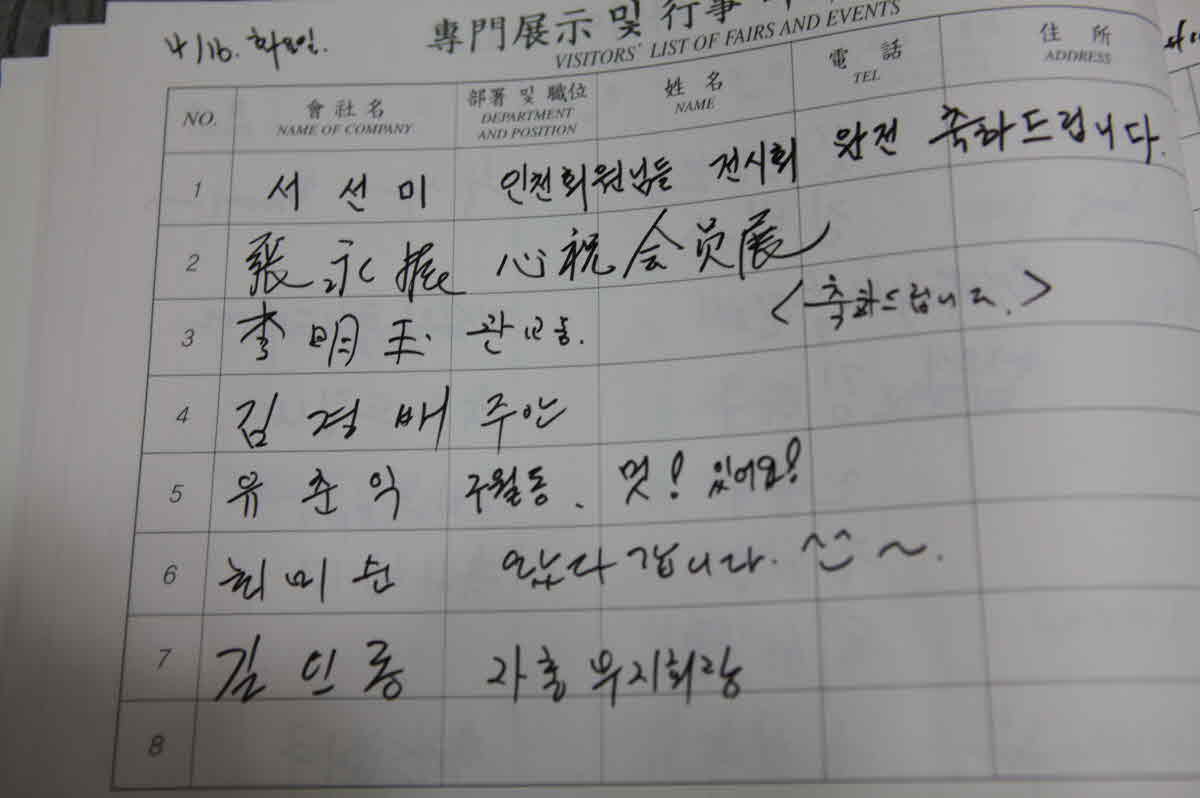 4/16. 화요일.
專門展示 및 行事
VISITORS' LIST OF FAIRS AND EVENTS
NO. 會社名 部署 및 職位 姓名 電話 住所
NAME OF COMPANY DEPARTMENT AND POSITION NAME TEL ADDRESS
1 서선미 인천회원님들 전시회 완전 축하드립니다.
2 張永振 心祝会员展
3 李明玉 관교동. <축하드립니다.>
4 김경배 주안
5 유춘익 구월동. 멋! 있어요!
6 최미순 왔다 갑니다. ^^ ~.
7 김인동
8